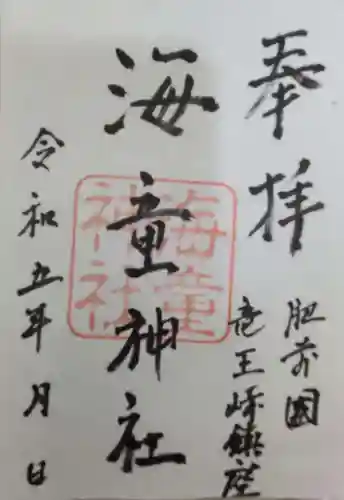 奉拝
肥前國
竜王崎鎮座
海童神社
海童
神社
令和五年月日